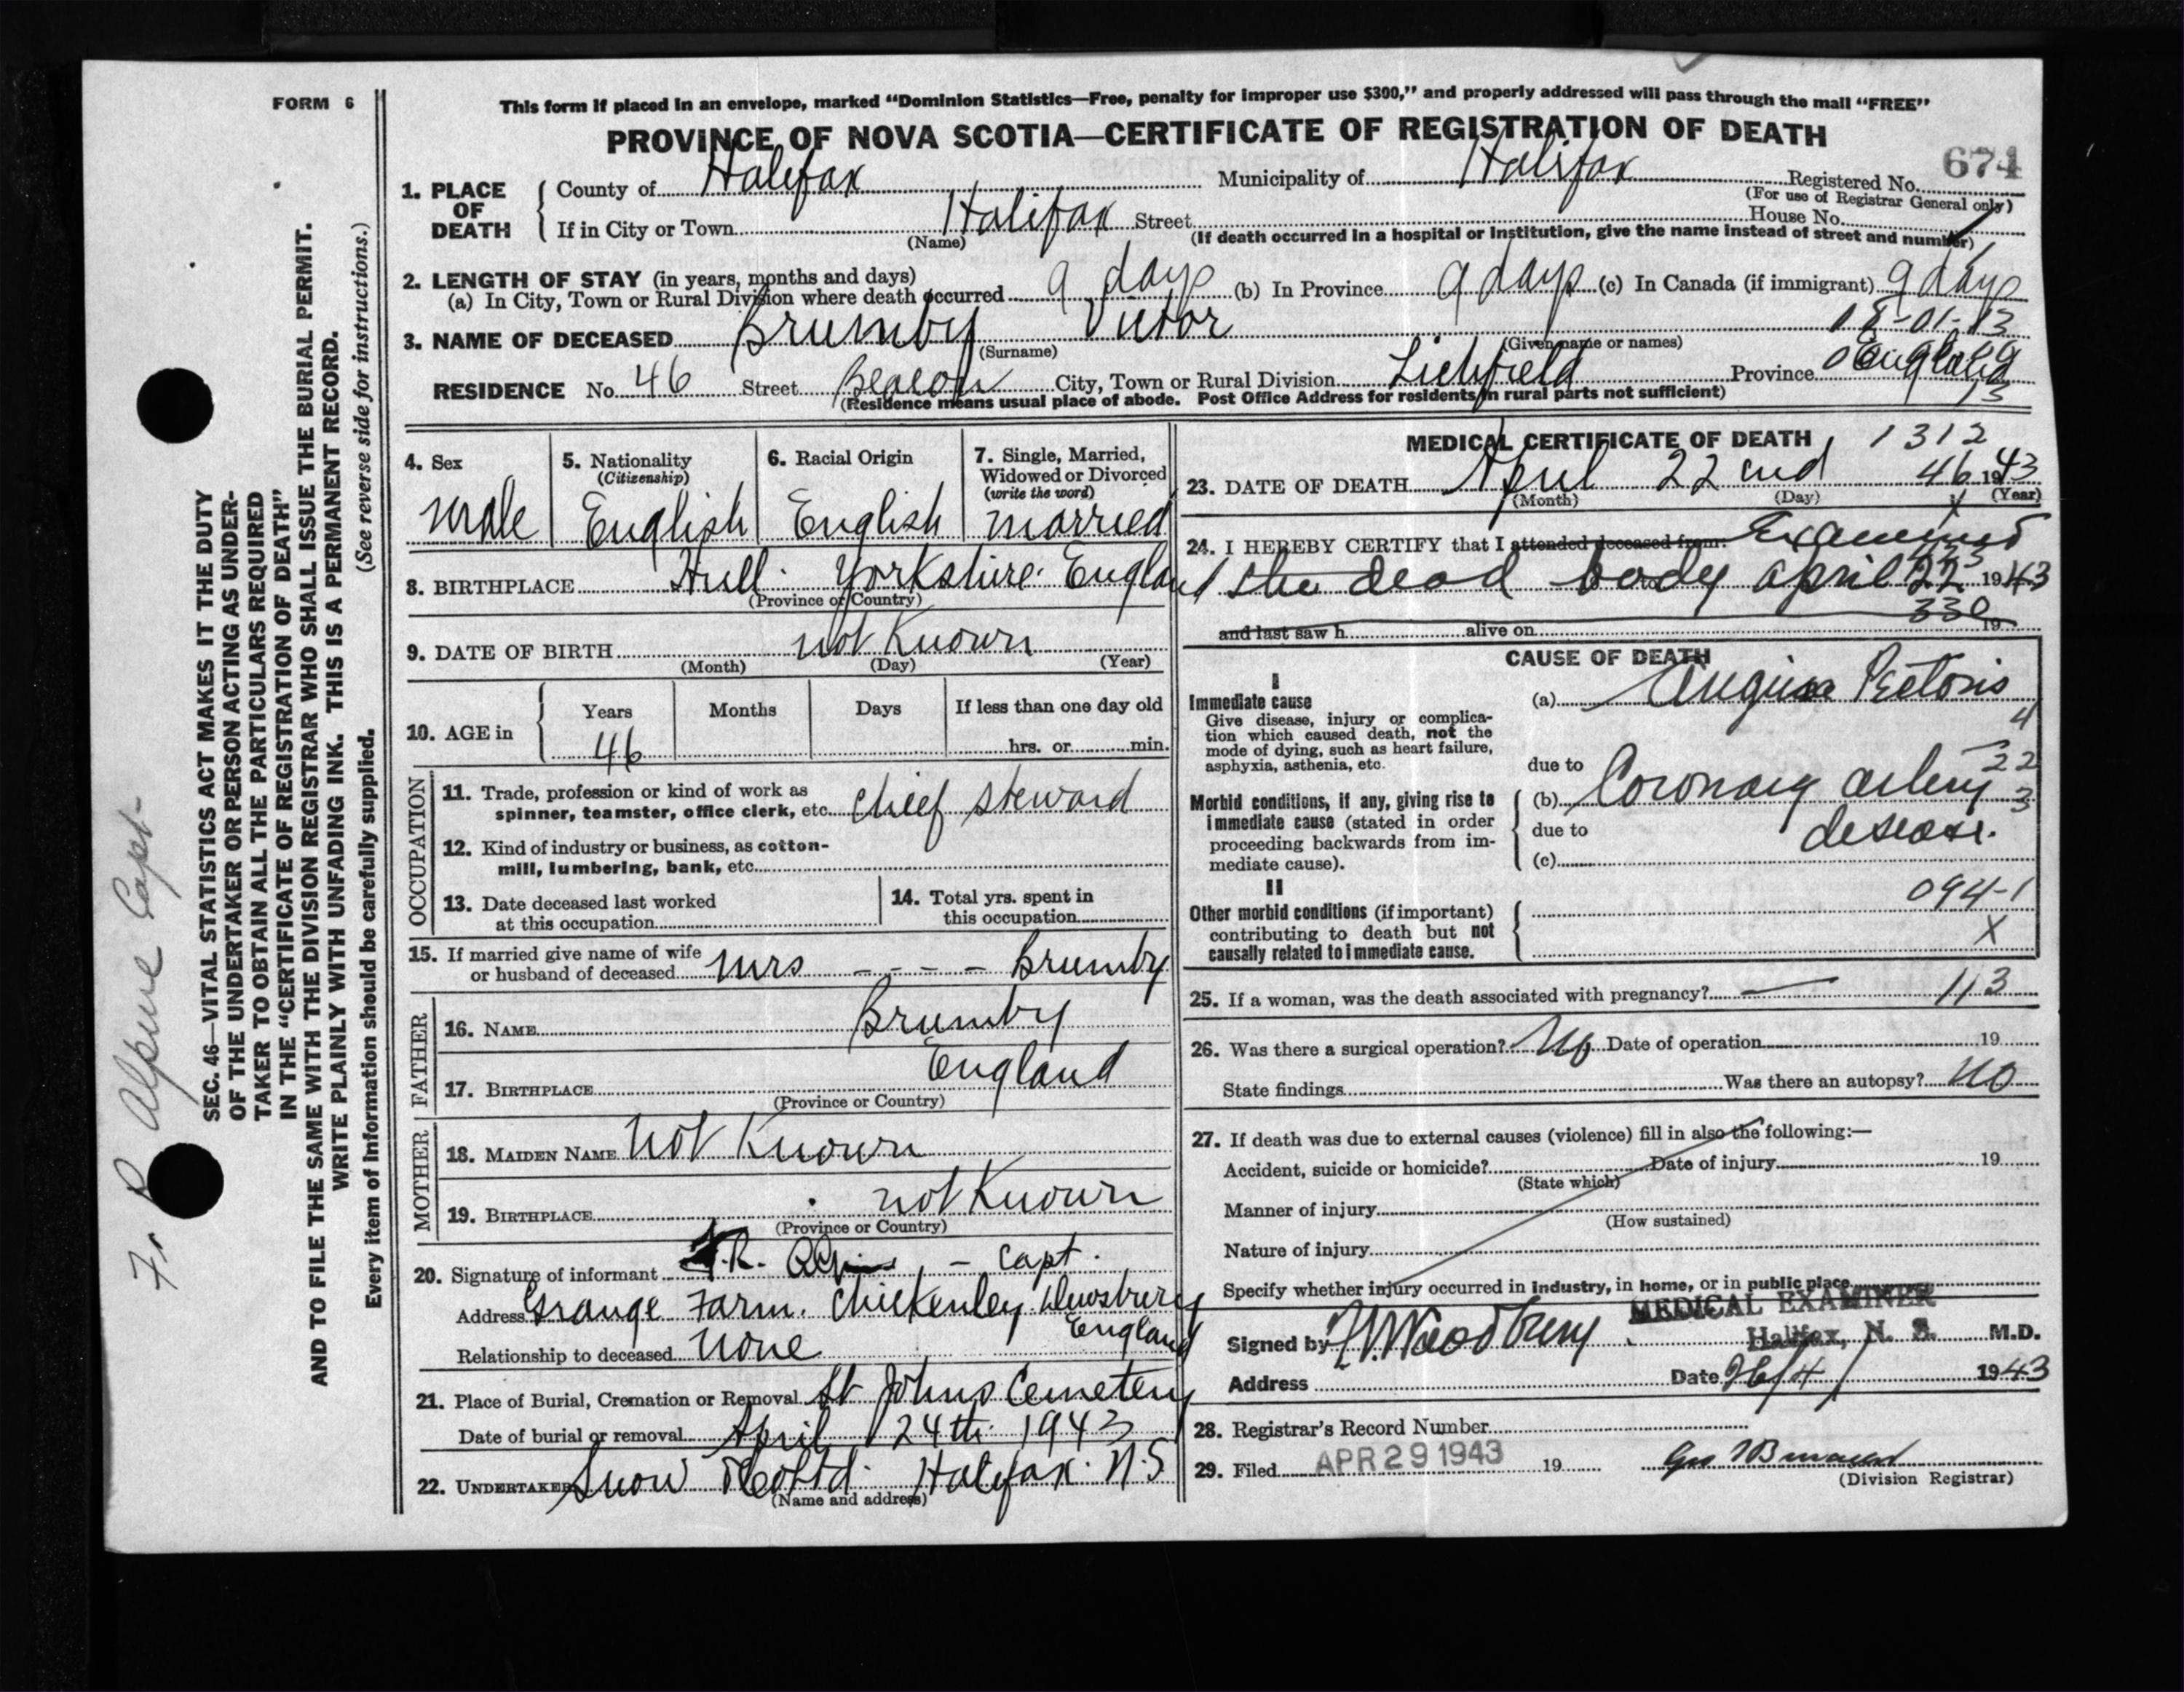 FORM 6
This form if placed in an envelope, marked "Dominion Statistics—Free, penalty for improper use $300," and properly addressed will pass through the mail "FREE"
PROVINCE OF NOVA SCOTIA—CERTIFICATE OF REGISTRATION OF DEATH
674
1. PLACE OF DEATH
County of Halifax Municipality of Halifax Registered No.
(For use of Registrar General only)
If in City or Town Halifax Street House No.
(Name) (If death occurred in a hospital or institution, give the name instead of street and number)
2. LENGTH OF STAY (in years, months and days)
(a) In City, Town or Rural Division where death occurred 9 days (b) In Province 9 days (c) In Canada (if immigrant) 9 days
3. NAME OF DECEASED Brumby Victor
(Surname) (Given name or names)
RESIDENCE No. 46 Street Beacon City, Town or Rural Division Lichfield Province England
(Residence means usual place of abode. Post Office Address for residents in rural parts not sufficient)
4. Sex
male
5. Nationality
(Citizenship)
English
6. Racial Origin
English
7. Single, Married,
Widowed or Divorced
(write the word)
married
8. BIRTHPLACE Hull. Yorkshire. England
(Province or Country)
9. DATE OF BIRTH not Known
(Month) (Day) (Year)
10. AGE in
Years Months Days If less than one day old
46 hrs. or min.
OCCUPATION
11. Trade, profession or kind of work as
spinner, teamster, office clerk, etc. Chief Steward
12. Kind of industry or business, as cotton-
mill, lumbering, bank, etc.
13. Date deceased last worked
at this occupation
14. Total yrs. spent in
this occupation
15. If married give name of wife
or husband of deceased Mrs - - - - Brumby
FATHER
16. NAME Brumby
17. BIRTHPLACE England
(Province or Country)
MOTHER
18. MAIDEN NAME not Known
19. BIRTHPLACE not Known
(Province or Country)
20. Signature of informant F.R. - Capt.
Address Grange Farm. Chickenley. Dewsbury
England
Relationship to deceased None
21. Place of Burial, Cremation or Removal St Johns Cemetery
Date of burial or removal April 24th 1943
22. UNDERTAKER Snow & Co Ltd. Halifax. N.S
(Name and address)
MEDICAL CERTIFICATE OF DEATH 1312
23. DATE OF DEATH April 22nd 46 1943
(Month) (Day) (Year)
24. I HEREBY CERTIFY that I attended deceased from: Examined
the dead body april 22 1943
330
and last saw h alive on 19
CAUSE OF DEATH
I
Immediate cause
Give disease, injury or complica-
tion which caused death, not the
mode of dying, such as heart failure,
asphyxia, asthenia, etc.
(a) Angina Pectoris
4
due to
Morbid conditions, if any, giving rise to
immediate cause (stated in order
proceeding backwards from im-
mediate cause).
(b) Coronary artery
due to
disease.
(c)
II
Other morbid conditions (if important)
contributing to death but not
causally related to immediate cause.
094-1
X
25. If a woman, was the death associated with pregnancy? — 113
26. Was there a surgical operation? No Date of operation 19
State findings Was there an autopsy? No
27. If death was due to external causes (violence) fill in also the following:—
Accident, suicide or homicide? Date of injury 19
(State which)
Manner of injury
(How sustained)
Nature of injury
Specify whether injury occurred in industry, in home, or in public place
MEDICAL EXAMINER
Signed by Woodbury Halifax, N. S. M.D.
Address Date 26/4/ 1943
28. Registrar's Record Number
29. Filed APR 29 1943 19
(Division Registrar)
SEC. 46—VITAL STATISTICS ACT MAKES IT THE DUTY
OF THE UNDERTAKER OR PERSON ACTING AS UNDER-
TAKER TO OBTAIN ALL THE PARTICULARS REQUIRED
IN THE "CERTIFICATE OF REGISTRATION OF DEATH"
AND TO FILE THE SAME WITH THE DIVISION REGISTRAR WHO SHALL ISSUE THE BURIAL PERMIT.
WRITE PLAINLY WITH UNFADING INK. THIS IS A PERMANENT RECORD.
(See reverse side for instructions.)
Every item of information should be carefully supplied.
F. R Alpine Capt-